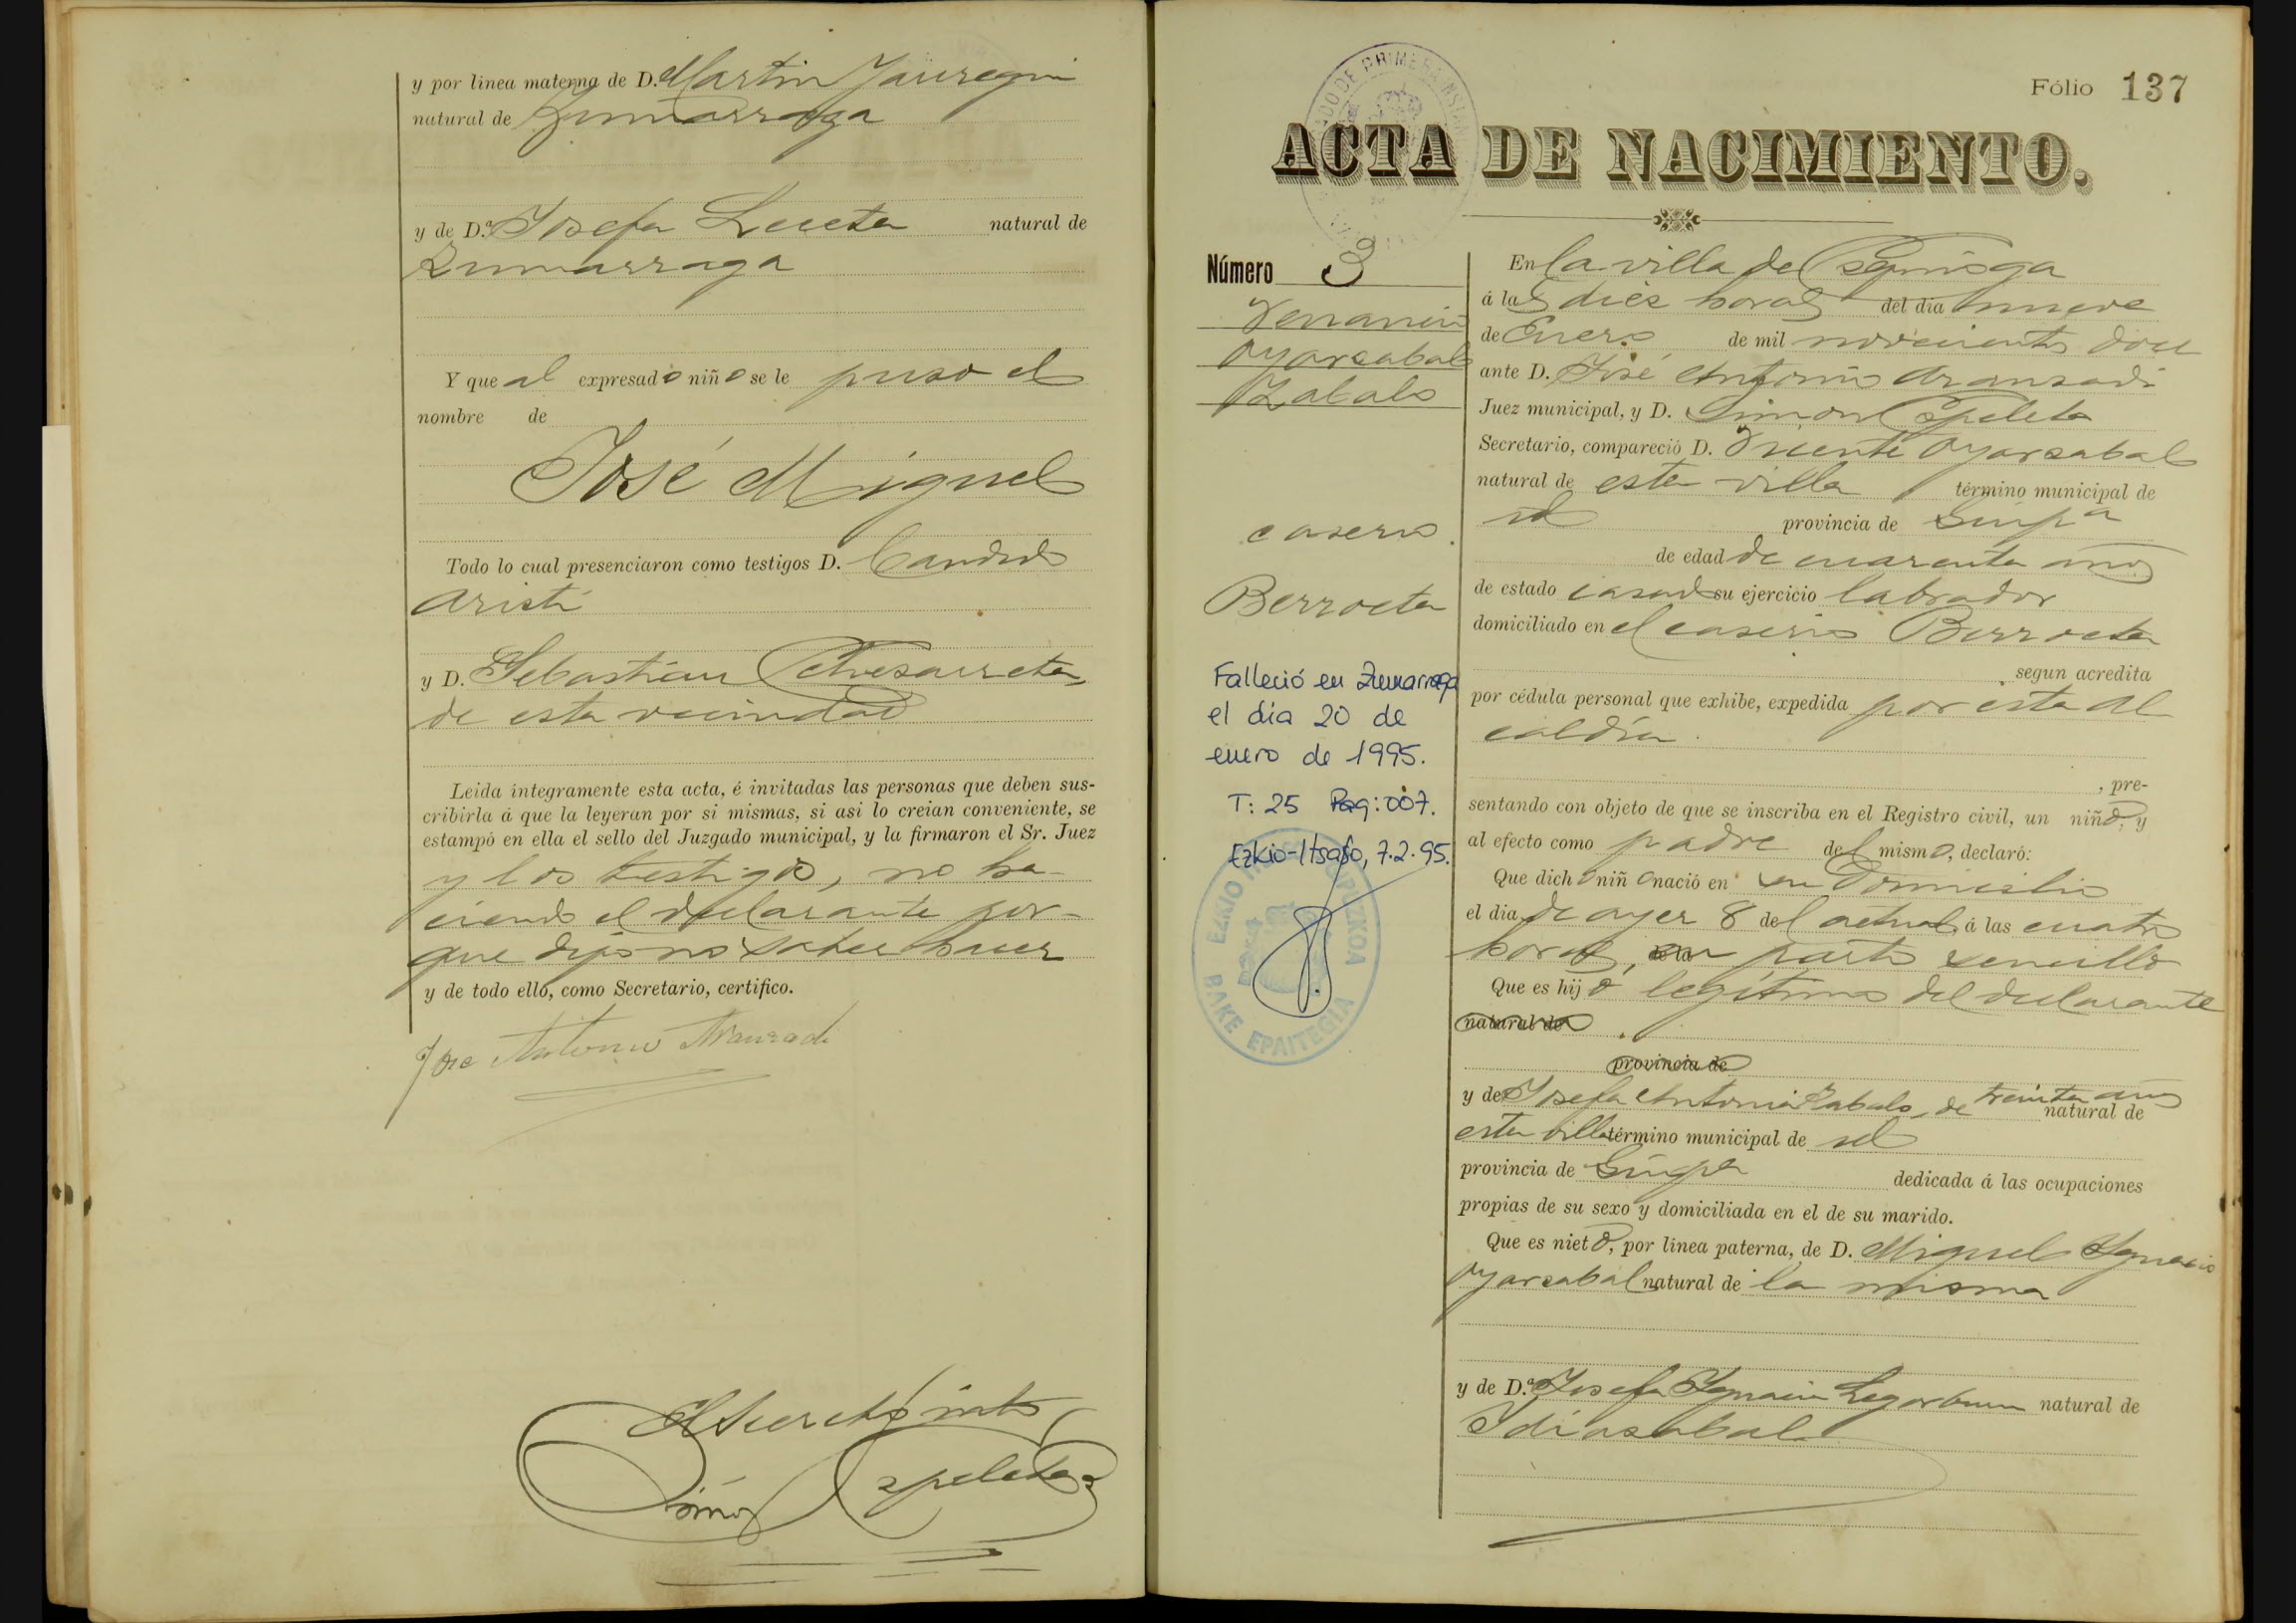 y por linea materna de D. Martin Jauregui
natural de Zumarraga
y de D.ª Josefa Leceta natural de
Zumarraga
Y que al expresado niño se le puso el
nombre de
José Miguel
Todo lo cual presenciaron como testigos D. Candido
Aristi
y D. Sebastian Echezarreta,
de esta vecindad
Leida íntegramente esta acta, é invitadas las personas que deben sus-
cribirla á que la leyeran por si mismas, si asi lo creian conveniente, se
estampó en ella el sello del Juzgado municipal, y la firmaron el Sr. Juez
y los testigos, no ha-
ciendo el declarante por-
que dijo no saber hacer
y de todo ello, como Secretario, certifico.
José Antonio Aranzadi
El Secretario
Simon Ezpeleta
Fólio 137
ACTA DE NACIMIENTO.
Número 3
Venancio
Oyarzabal
Zabalo
caserio
Berroeta
Falleció en Zumarraga
el día 20 de
enero de 1995.
T: 25 Pag: 007.
Ezkio-Itsaso, 7.2.95.
BAKE EPAITEGIA
En la villa de Ezquioga
á las diez horas del dia nueve
de Enero de mil novecientos doce
ante D. José Antonio Aranzadi
Juez municipal, y D. Simon Ezpeleta
Secretario, compareció D. Vicente Oyarzabal
natural de esta villa término municipal de
id provincia de Guipª
de edad de cuarenta años
de estado casado su ejercicio labrador
domiciliado en el caserio Berroeta
segun acredita
por cédula personal que exhibe, expedida por esta Al
caldía.
, pre-
sentando con objeto de que se inscriba en el Registro civil, un niño, y
al efecto como padre del mismo, declaró:
Que dicho niño nació en su domicilio
el dia de ayer 8 del actual á las cuatro
horas, parto sencillo
Que es hijo legítimo del declarante
natural de
provincia de
y de Josefa Antonia Zabalo, de treinta años natural de
esta villa término municipal de id
provincia de Guipª dedicada á las ocupaciones
propias de su sexo y domiciliada en el de su marido.
Que es nieto, por linea paterna, de D. Miguel Ignacio
Oyarzabal natural de la misma
y de D.ª Josefa Ignacia natural de
Idiazabal